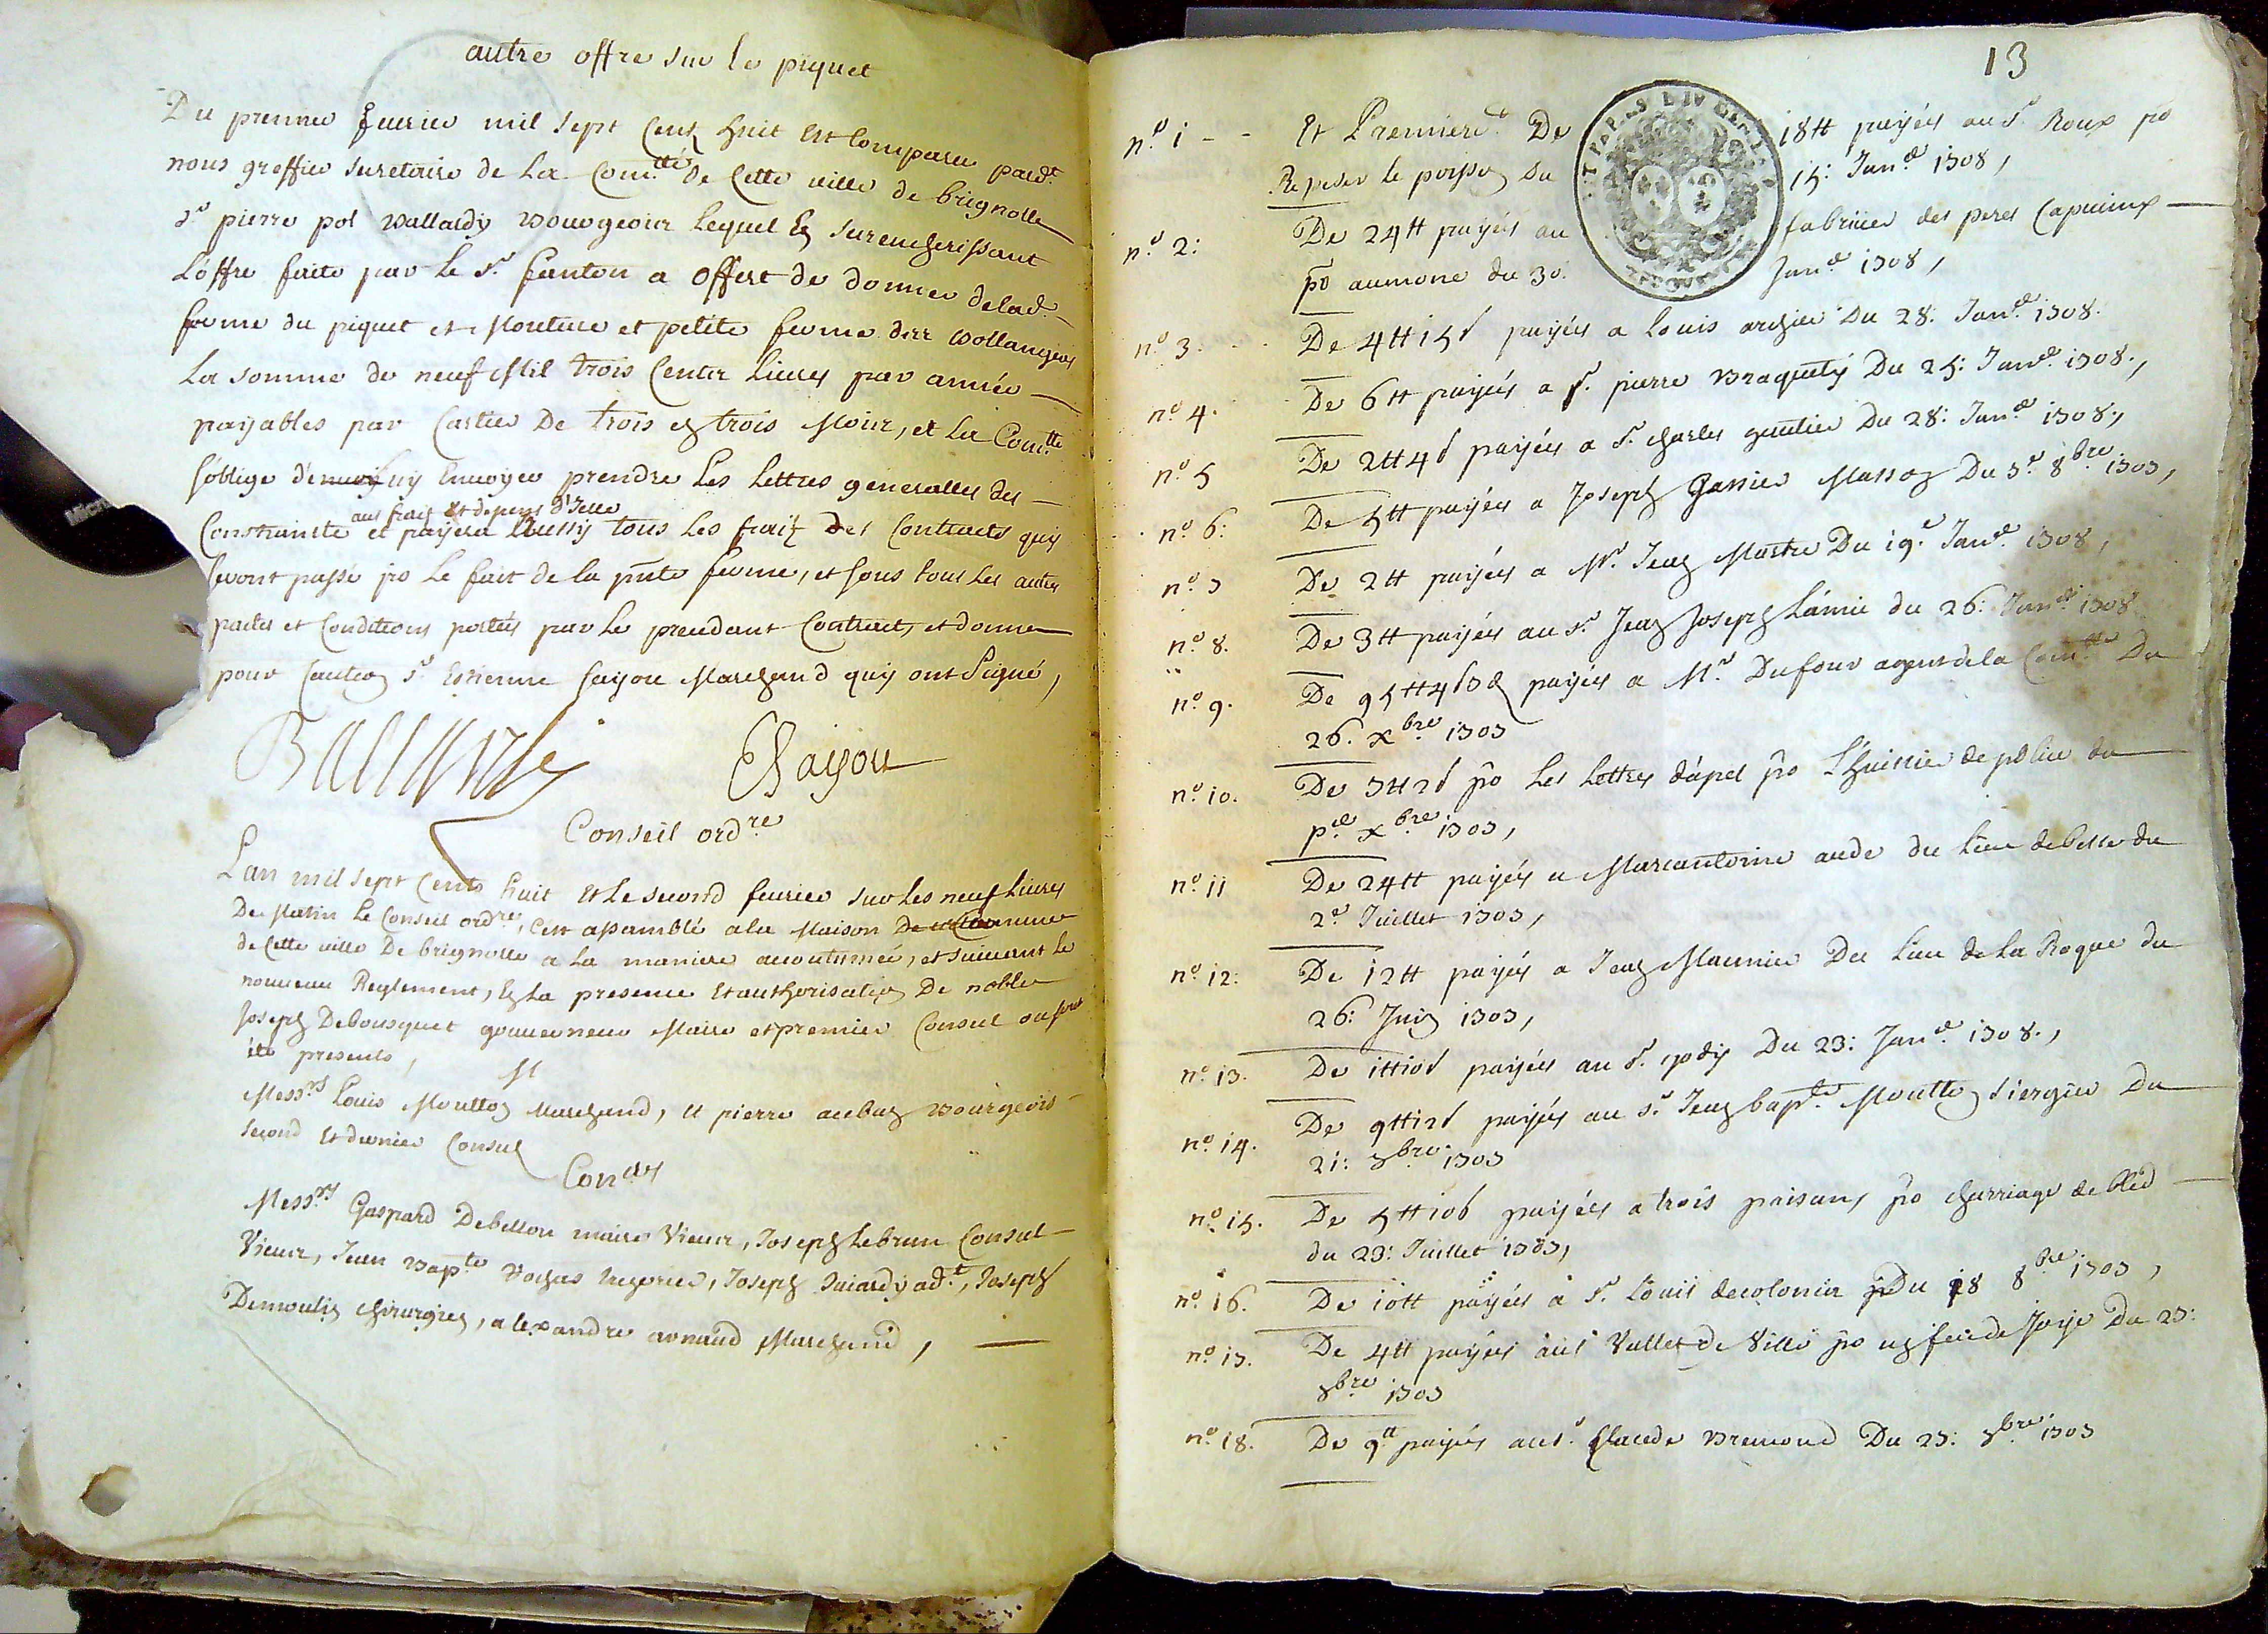 autre offre sur le piquet
Du premier feurier mil sept cens huit est comparu pard.t
nous greffier secretaire de la Com.tté de cette ville de brignolle
s.r pierre pol vallardy bourgeois lequel en surencherissant
L'offre faite par le s.r fanton a offert de donner de lad.
ferme du piquet et mouture et petite ferme des bollangers
La somme de neuf Mil trois Centz Liures par année
payables par Cartier De trois en trois Mois, et la Com.tté
s'oblige d'enuoyer Enuoyer prendre les lettres generalles des
aus frais et depens d'Icelle
Constrainte et payera aussy tous les fraix des Contracts quy
seront passé po le fait de la pnte ferme, et sous tous les autres
pactes et Conditions portés par le precedant Contract, et donne
pour Caution s.r Estienne sayou Marchand quy ont signé,
Ballardy
ESayou
Conseil ord.re
L'an mil sept Cents huit et le second feurier sur les neuf hures
De Matin le Conseil ord.re, c'est assamblé a la Maison De la Commune
de Cette ville De brignolle a la maniere acoutumée, et suiuant le
nouueau Reglement, En la presence et authorisation De noble
Joseph Debousquet gouuerneur Maire et premier Consul ou sont
été presents,
M
Mess.rs Louis Moutton Marchand, et pierre aubun bourgeois
second et dernier Consul
Con.ers
Mess.rs Gaspard Debellon maire Vieux, Joseph lebrun Consul
Vieux, Jean bap.te, Joseph Suiardy ad.t, Joseph
Demoulin chirurgien, alexandre arnaud Marchand,
13
n.o 1 Et Premiere.t De 18tt payées au s.r Roux po
Repeser le poisson Du 15: Jan.er 1708,
n.o 2: De 24tt payées au fabricier des peres Capucins
po aumone du 30. Jan.er 1708,
n.o 3. De 4tt 15s payées a Louis archier Du 28. Jan.er 1708.
n.o 4. De 6tt payées a s.r pierre braquety Du 25: Jan.er 1708.,
n.o 5 De 2tt 4s payées a s.r charles gautier Du 28: Jan.er 1708,
n.o 6: De 5tt payées a Joseph Garnier Masson Du 7.e 8bre 1707,
n.o 7 De 2tt payées a M.r Jean Mastre Du 19.e Jan.er 1708,
n.o 8. De 3tt payées au s.r Jean Joseph Lámic du 26: Jan.er 1708
n.o 9. De 95tt 4s 7d payées a M.r Dufour agent de la Com.tté Du
26. xbre 1707
n.o 10. De 7tt 2s po Les Lettres d'apel po L'huissier de police du
p.er xbre 1707,
n.o 11 De 24tt payées a Marcantoine aude du lieu de besse du
2.e Juillet 1707,
n.o 12: De 12tt payées a Jean Maunier Du lieu de La Roque du
26: Juin 1707,
n.o 13. De 1tt 10s payées au s.r Du 23: Jan.er 1708.,
n.o 14. De 9tt 12s payées au s.r Jean bap.te Moutton siergier Du
21: 8bre 1707
n.o 15. De 5tt 10s payées a trois paisans po charriage de bled
du 23: Juillet 1707,
n.o 16. De 10tt payées a s.r Louis decolonia Du 18 8bre 1707,
n.o 17. De 4tt payées aus Vallet de Ville po un feu de Joye Du 27:
8bre 1707
n.o 18. De 9tt payées au s.r Claude bremond Du 27: 8bre 1707